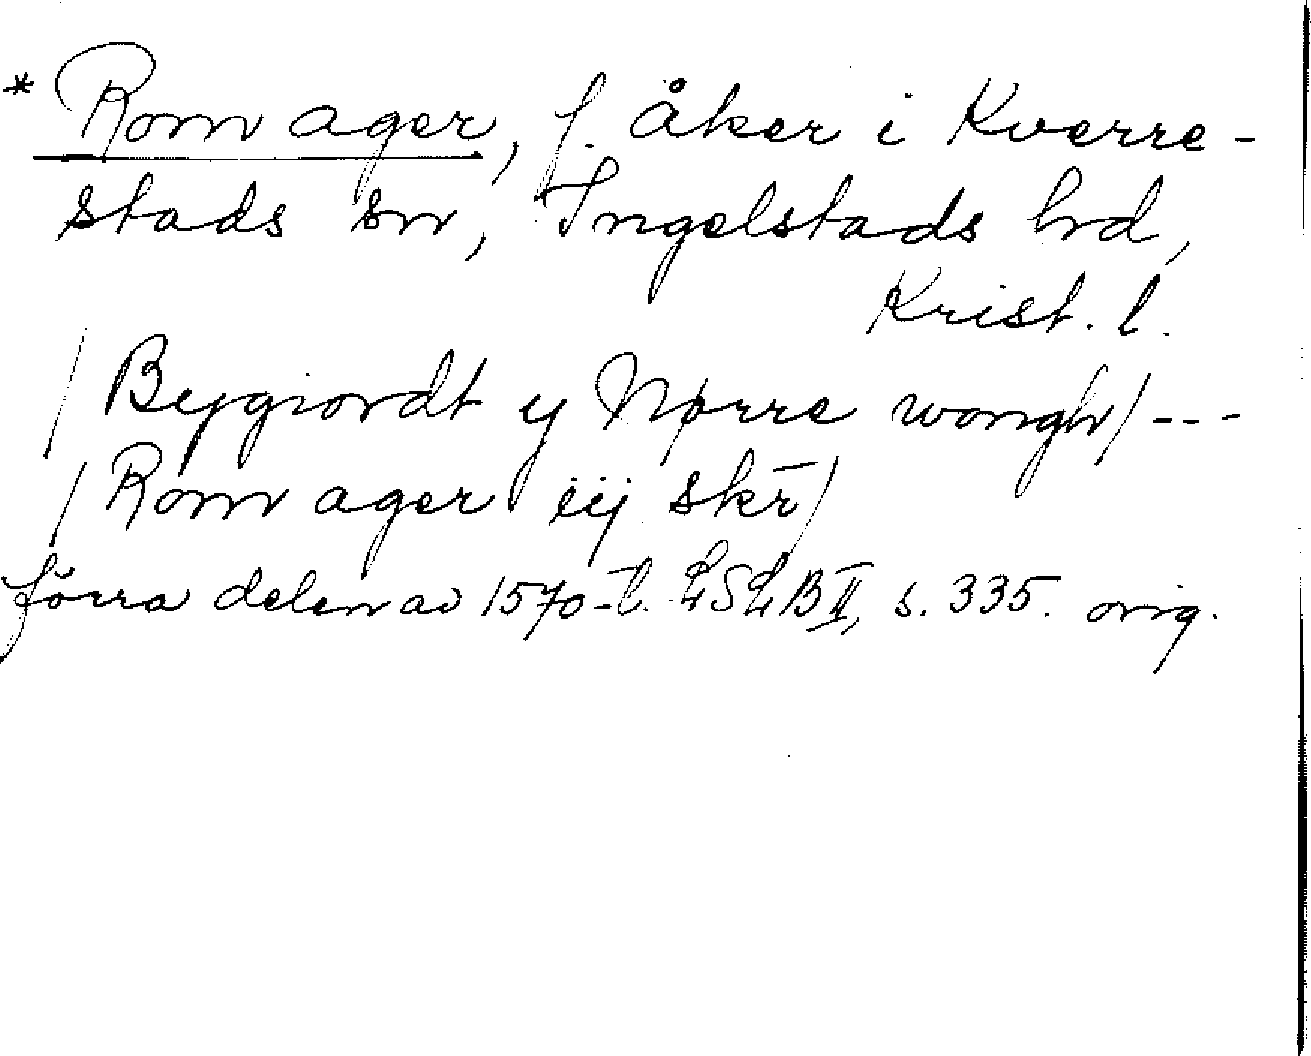 * Rom ager, f. åker i Kverre-
stads sn, Ingelstads hd,
Krist. l.
/Bygiordt y Nørre wongh/ ---
/Rom ager iij skr̄/
förra delen av 1570-t. LSLB II, s. 335. orig.